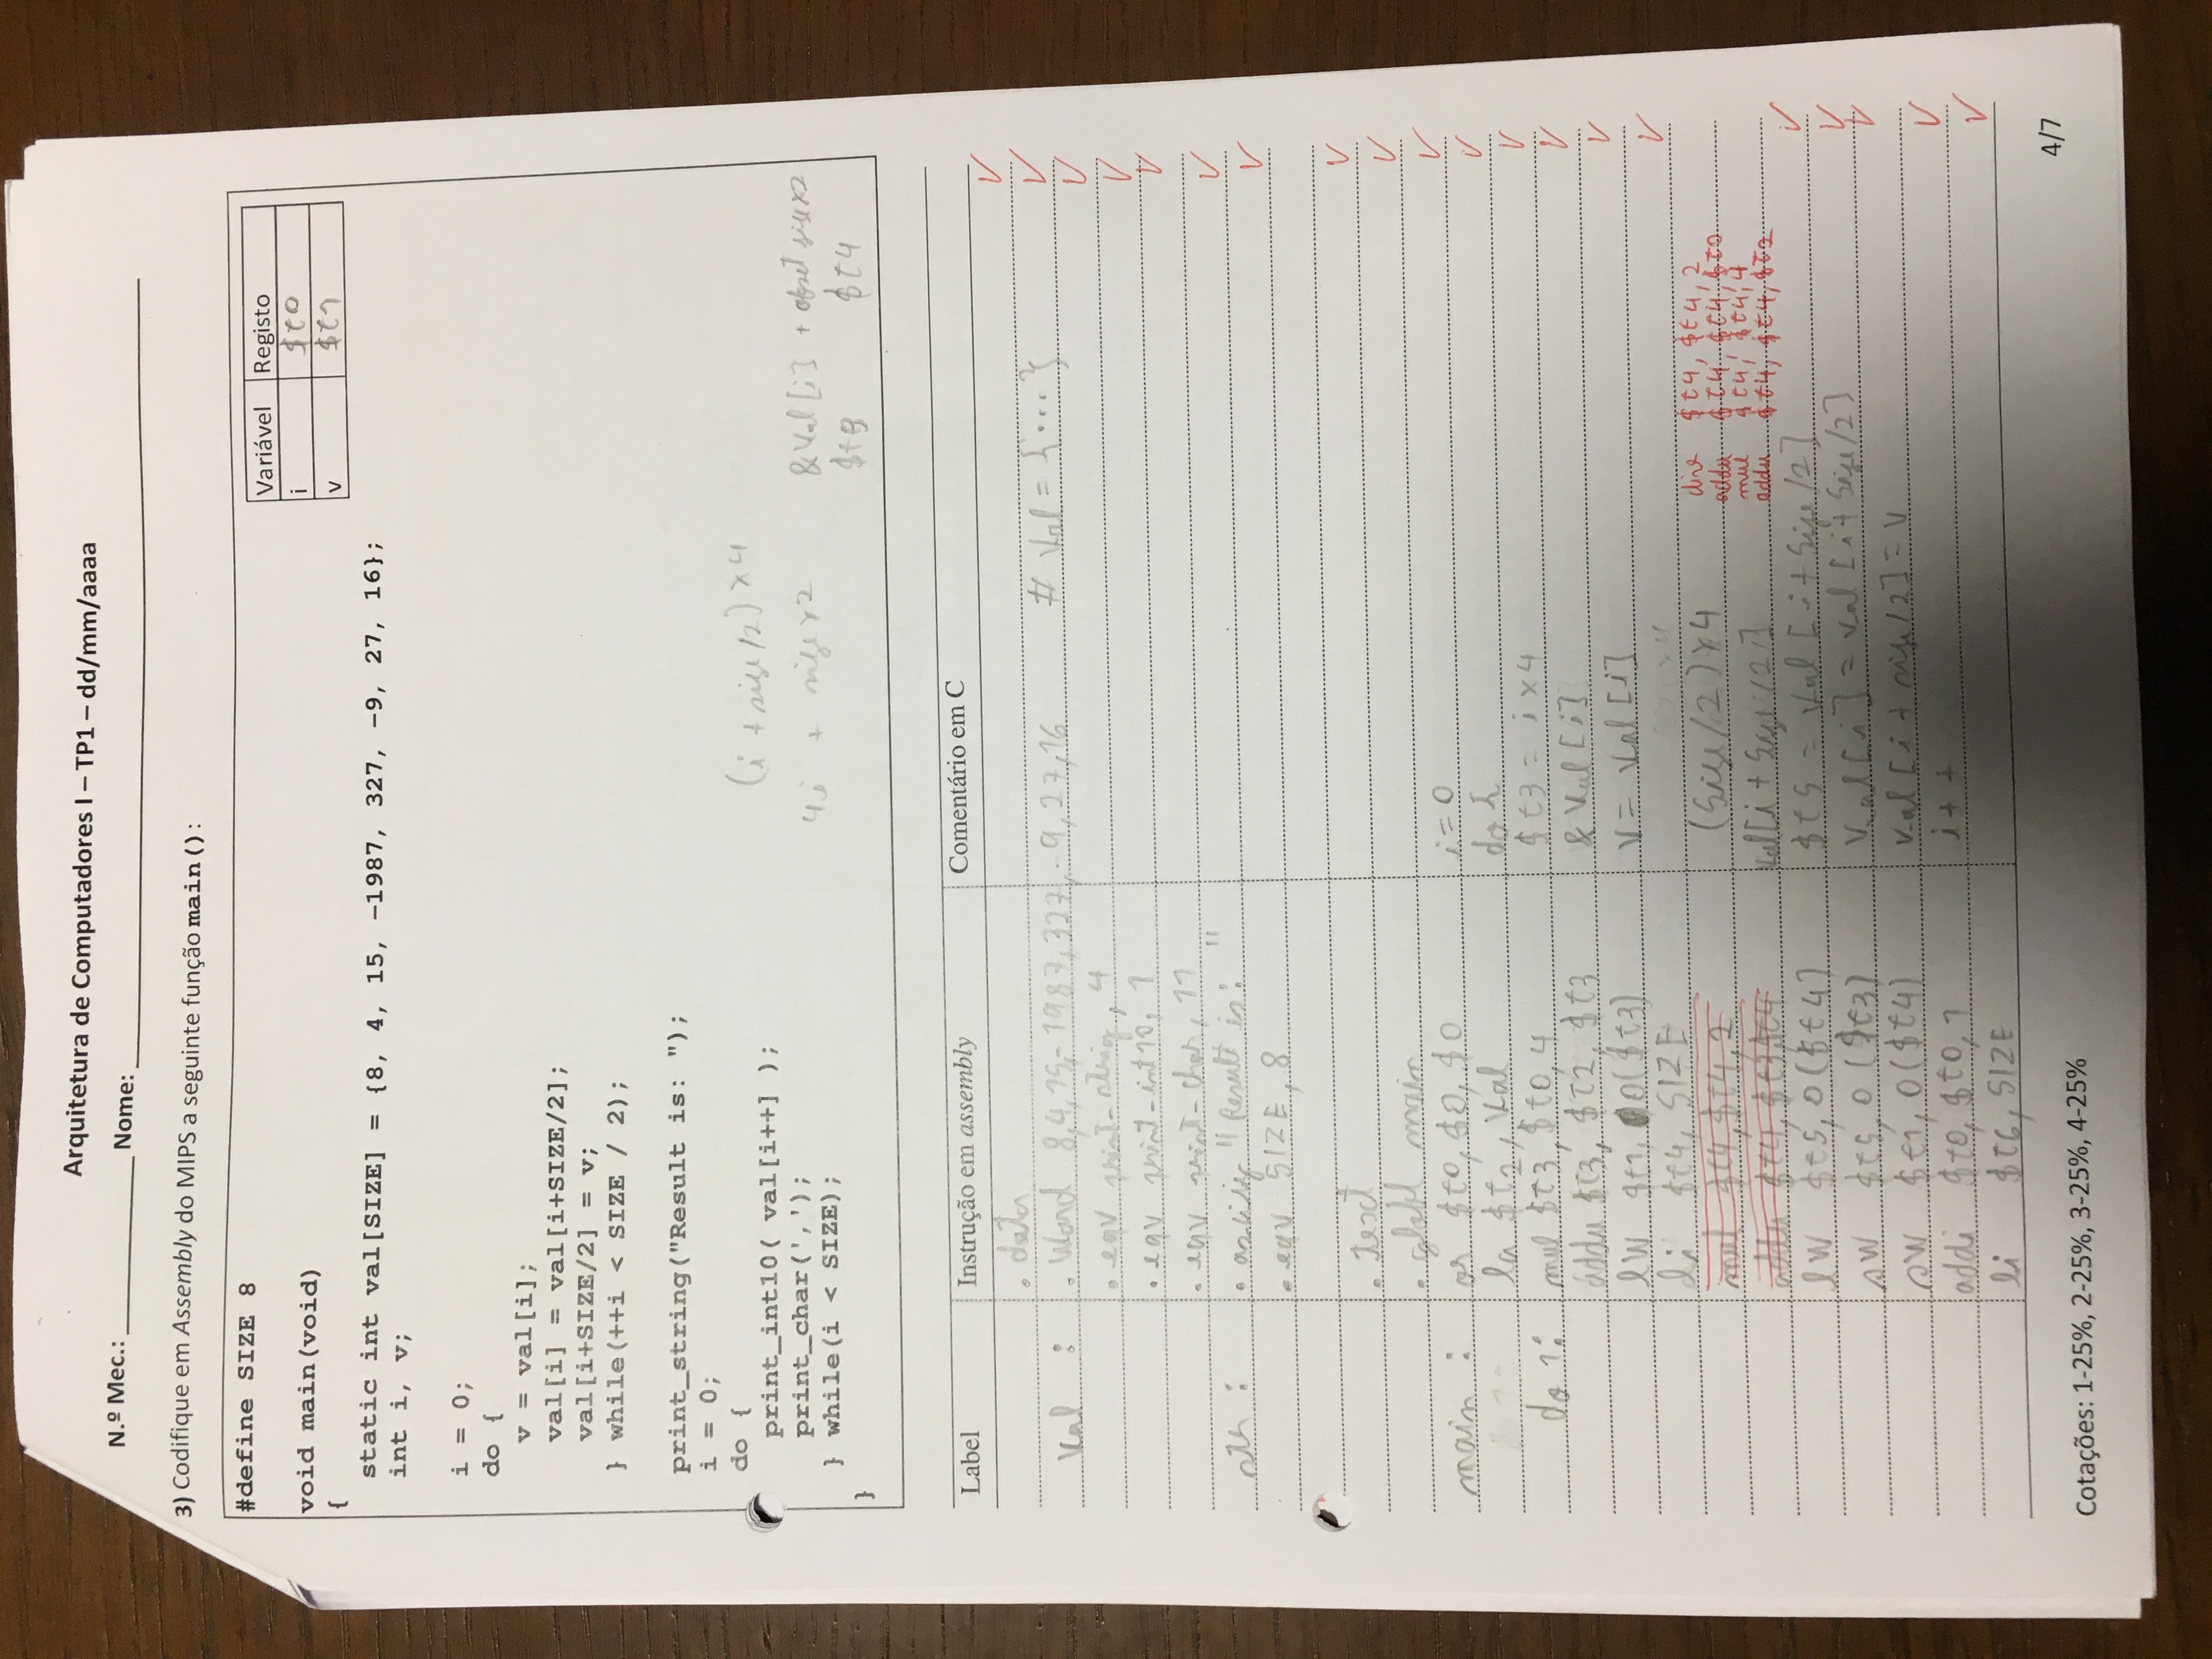 Arquitetura de Computadores I – TP1 – dd/mm/aaaa
N.º Mec.: Nome:
3) Codifique em Assembly do MIPS a seguinte função main():
#define SIZE 8
Variável Registo
i $t0
v $t1
void main(void)
{
static int val[SIZE] = {8, 4, 15, -1987, 327, -9, 27, 16};
int i, v;
i = 0;
do {
v = val[i];
val[i] = val[i+SIZE/2];
val[i+SIZE/2] = v;
} while(++i < SIZE / 2);
print_string("Result is: ");
i = 0;
do {
print_int10( val[i++] );
print_char(',');
} while(i < SIZE);
}
(i + size/2) x4
4i + size x2 &val[i] + ofset size x2
$t3 $t4
Label Instrução em assembly Comentário em C
.data
val : .word 8,4,15,-1987,327,-9,27,16 # val = {...}
.eqv print_string, 4
.eqv print_int10, 1
.eqv print_char, 11
str : .asciiz "Result is: "
.eqv SIZE, 8
.text
.globl main
main : or $t0, $0, $0 i=0
la $t2, val do {
do1: mul $t3, $t0, 4 $t3 = i x4
addu $t3, $t2, $t3 &val[i]
lw $t1, 0($t3) v = val[i]
li $t4, SIZE
mul $t4, $t4, 2 (size/2)x4 div $t4, $t4, 2
addu $t4, $t4, $t0
addu $t4, $t3, $t4 val[i + size/2] mul $t4, $t4, 4
addu $t4, $t4, $t2
lw $t5, 0($t4) $t5 = val[i + size/2]
sw $t5, 0($t3) val[i] = val[i + size/2]
sw $t1, 0($t4) val[i + size/2] = v
addi $t0, $t0, 1 i++
li $t6, SIZE
Cotações: 1-25%, 2-25%, 3-25%, 4-25%
4/7